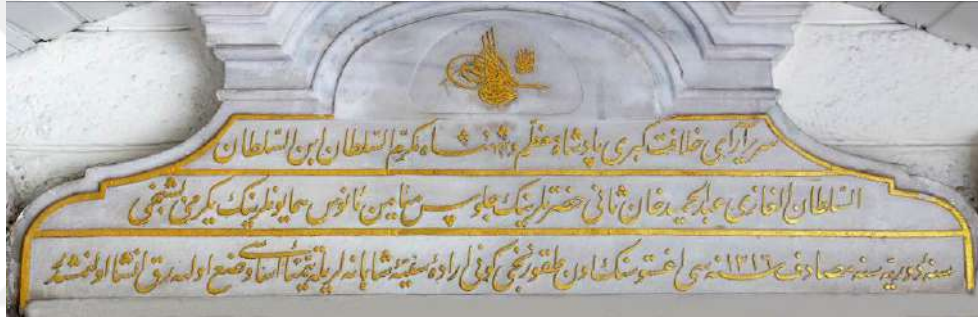 سریر آرای خلافت کبری پادشاه معظم و شهنشاه مکرم السلطان ابن السلطان
السلطان الغازی عبدالحمید خان ثانی حضرتلرینک جلوس میامین مأنوس همایونلرینک یکرمی بشنجی
سنهٔ دوریه‌سنه مصادف ۱۳۱۶ سنه‌سی اغستوسنک اون طقوزنجی کونی ارادهٔ سنیهٔ شاهانه‌لریله تیمناً اساسی وضع اولنه‌رق انشا اولنمشدر